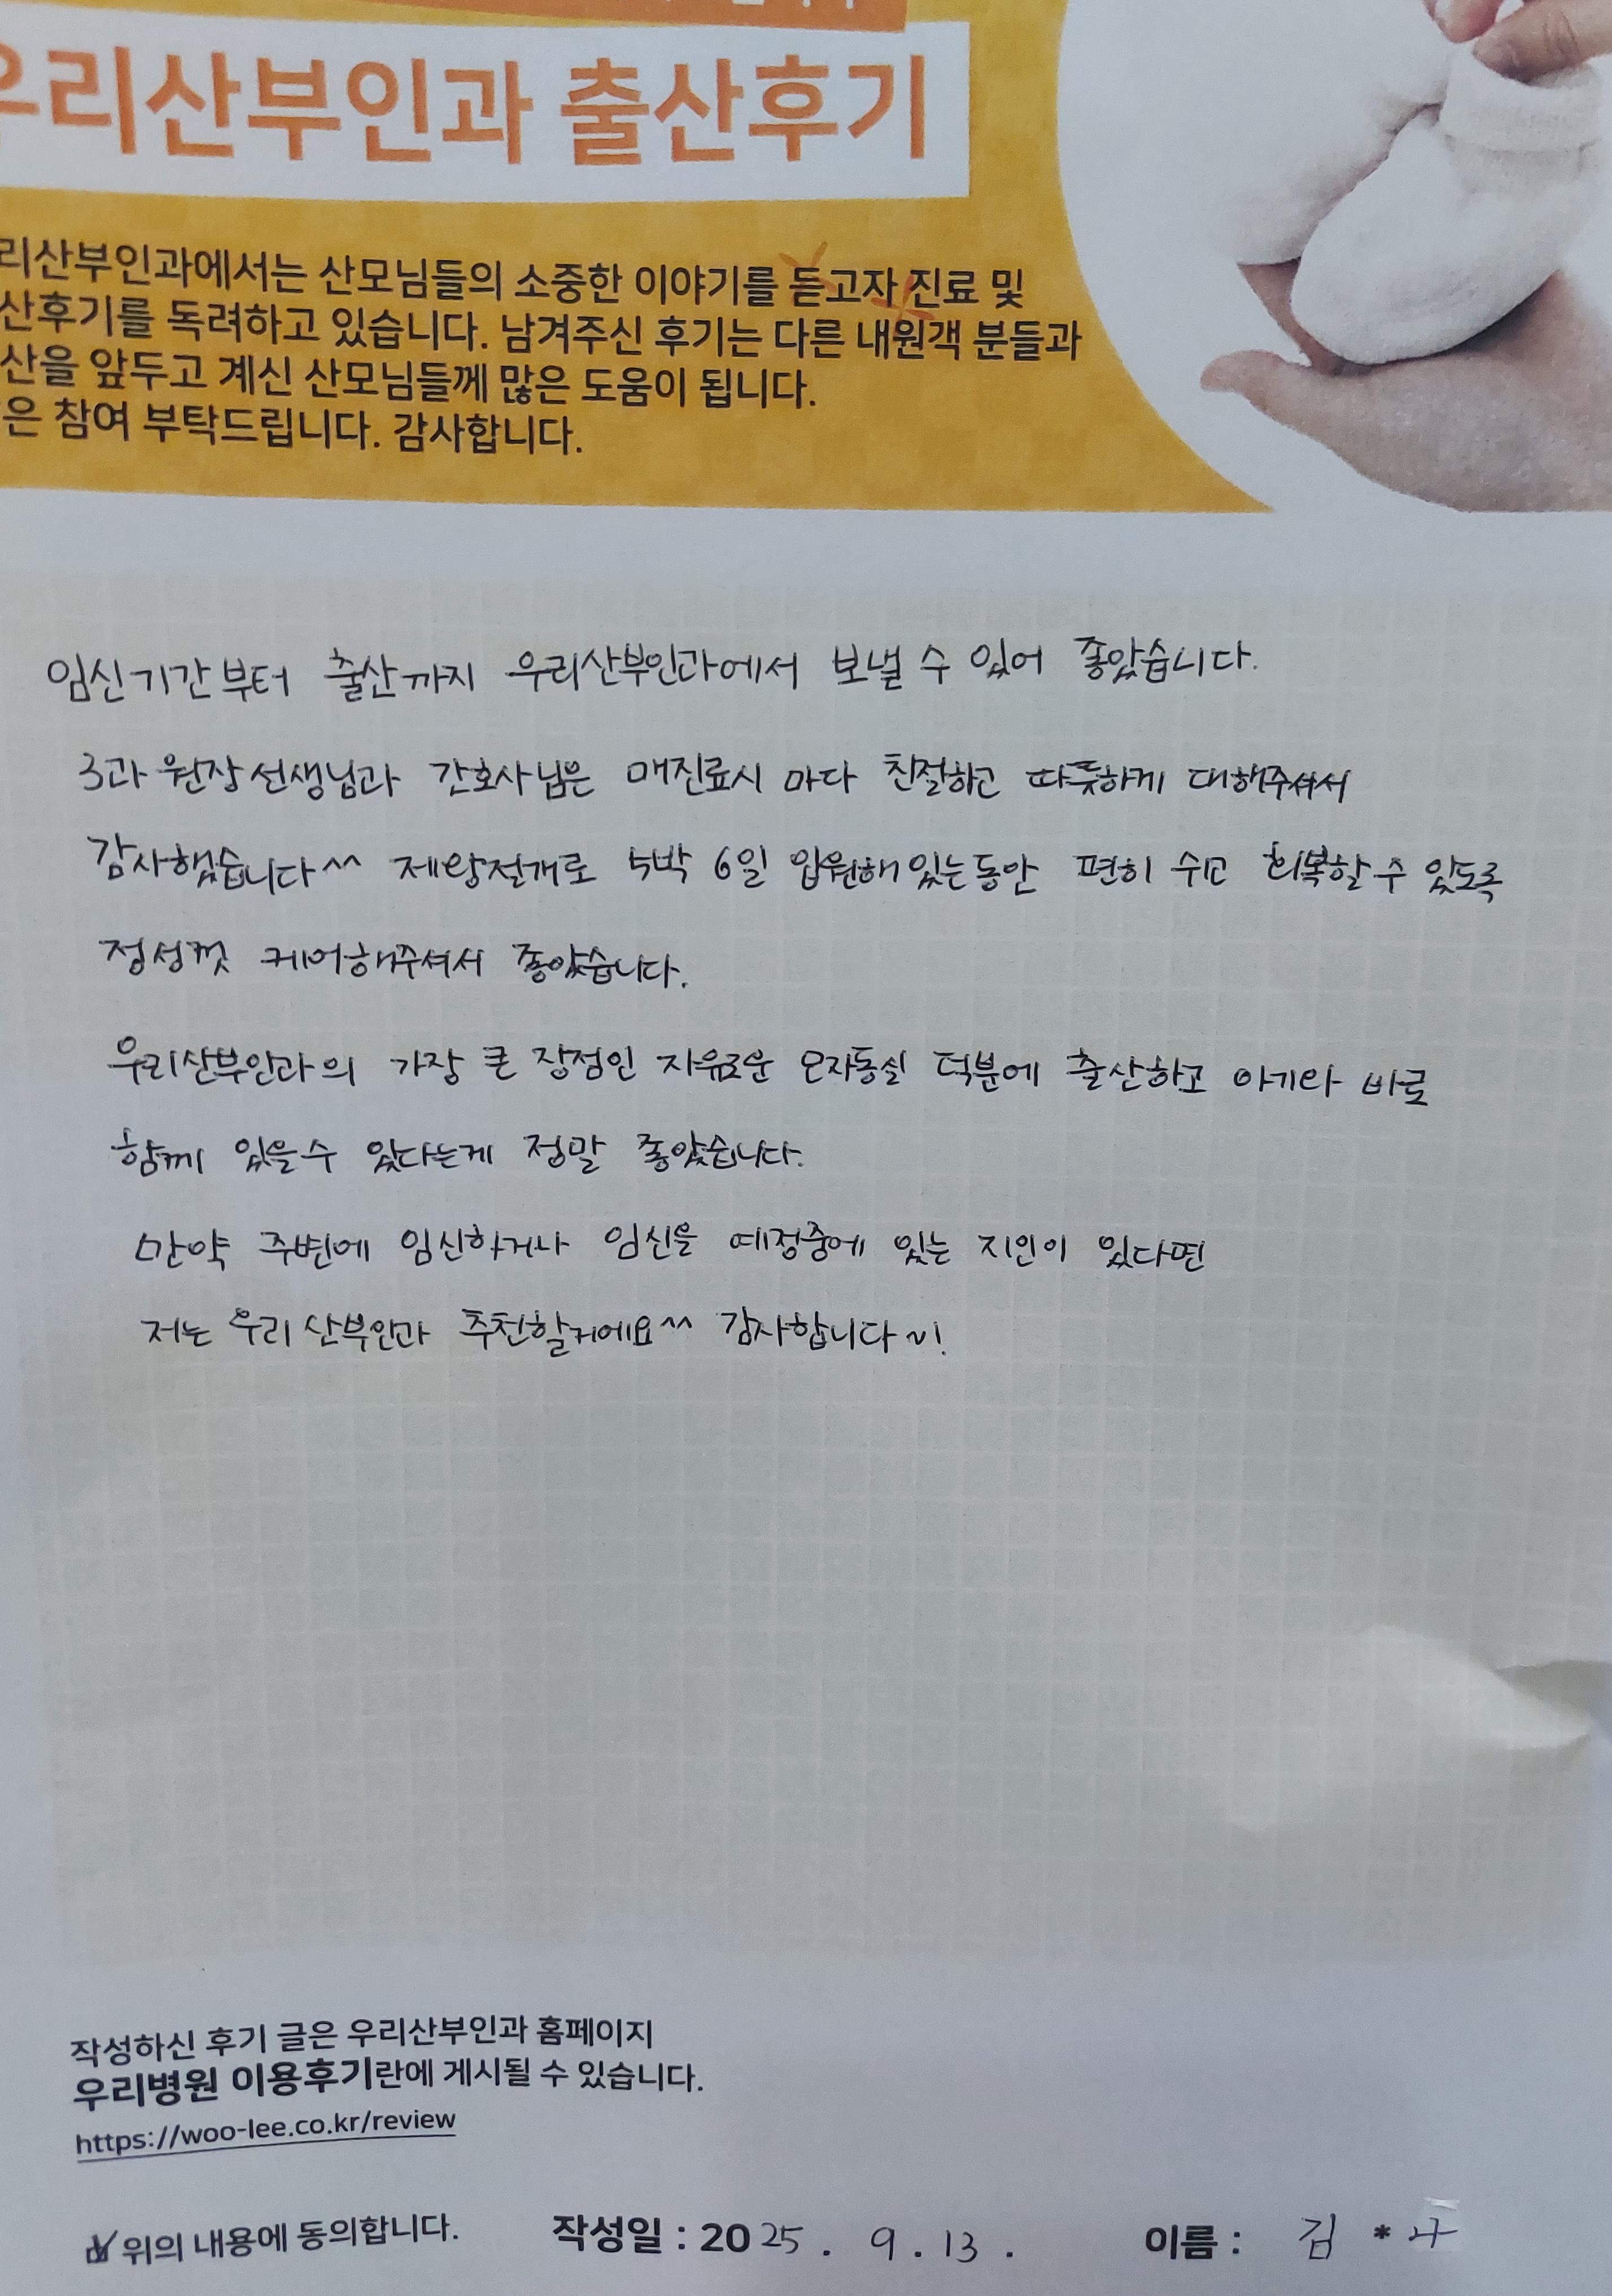 우리산부인과 출산후기
리산부인과에서는 산모님들의 소중한 이야기를 듣고자 진료 및
산후기를 독려하고 있습니다. 남겨주신 후기는 다른 내원객 분들과
산을 앞두고 계신 산모님들께 많은 도움이 됩니다.
은 참여 부탁드립니다. 감사합니다.
임신기간부터 출산까지 우리산부인과에서 보낼 수 있어 좋았습니다.
3과 원장선생님과 간호사님은 매진료시 마다 친절하고 따뜻하게 대해주셔서
감사했습니다^^ 제왕절개로 5박 6일 입원해있는동안 편히 쉬고 회복할 수 있도록
정성껏 케어해주셔서 좋았습니다.
우리산부인과의 가장 큰 장점인 자유로운 모자동실 덕분에 출산하고 아기와 바로
함께 있을수 있다는게 정말 좋았습니다.
만약 주변에 임신하거나 임신을 예정중에 있는 지인이 있다면
저는 우리산부인과 추천할거에요^^ 감사합니다~!
작성하신 후기 글은 우리산부인과 홈페이지
우리병원 이용후기란에 게시될 수 있습니다.
https://woo-lee.co.kr/review
위의 내용에 동의합니다. 작성일 : 2025. 9. 13. 이름 : 김 *